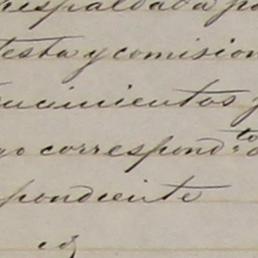 respaldada po
testa y comision
ucimientos y
go correspond.to
pondiente
id